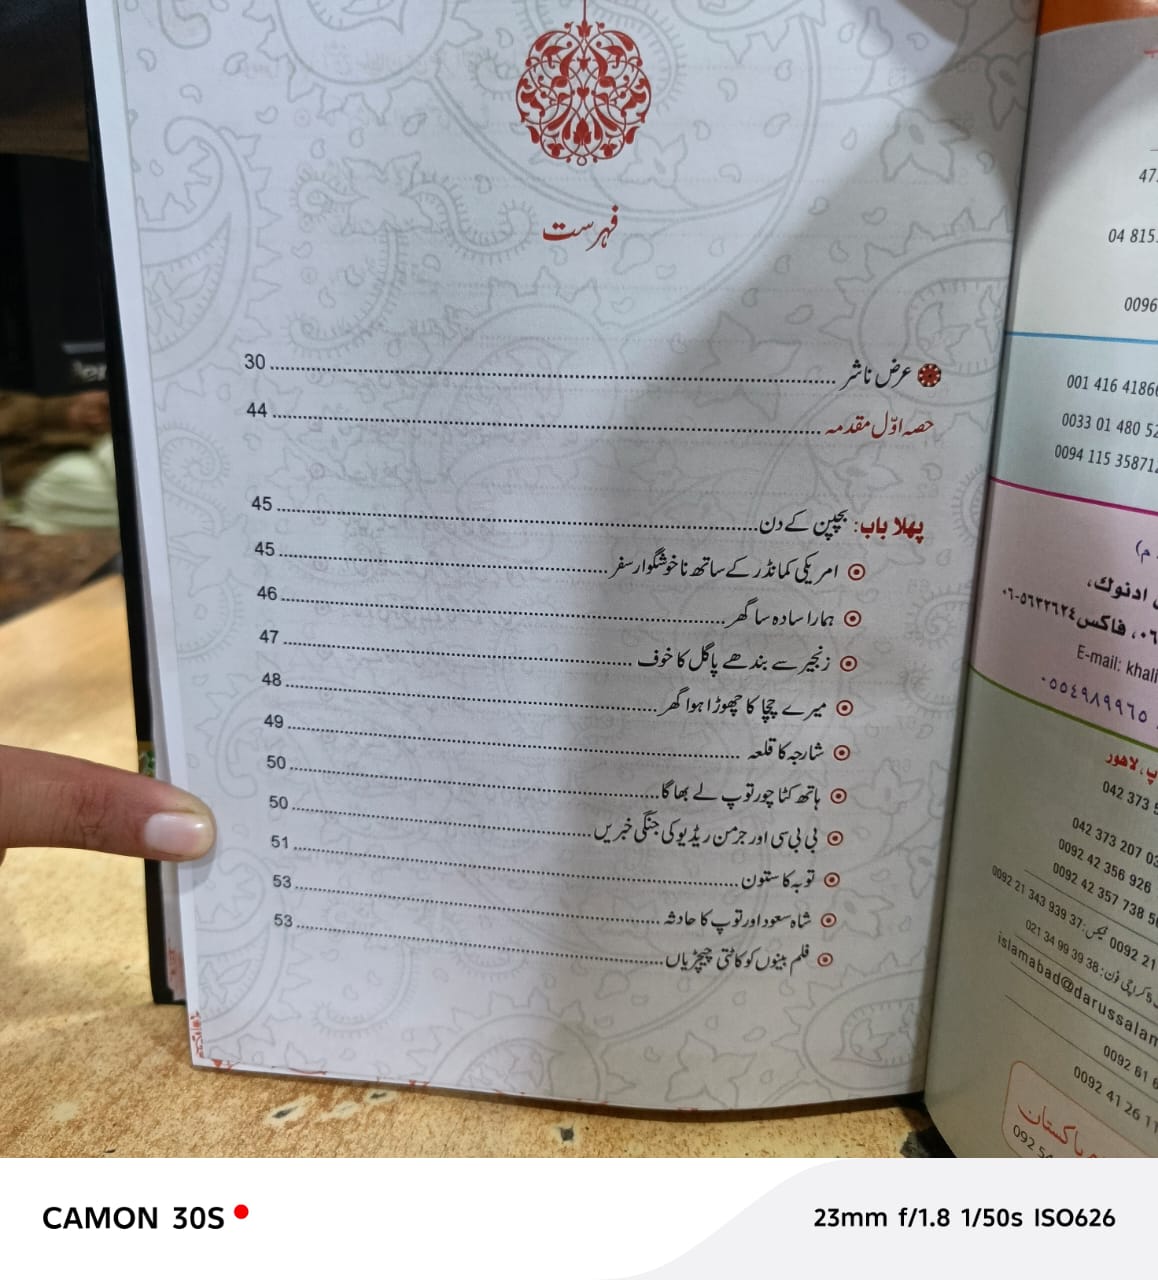 فہرست
عرض ناشر ........ 30
حصہ اوّل مقدمہ ........ 44
پہلا باب: بچپن کے دن ........ 45
امریکی کمانڈر کے ساتھ ناخوشگوار سفر ........ 45
ہمارا سادہ سا گھر ........ 46
زنجیر سے بندھے پاگل کا خوف ........ 47
میرے چچا کا چھوڑا ہوا گھر ........ 48
شارجہ کا قلعہ ........ 49
ہاتھ کٹا چور توپ لے بھاگا ........ 50
بی بی سی اور جرمن ریڈیو کی جنگی خبریں ........ 50
توبہ کا ستون ........ 51
شاہ سعود اور توپ کا حادثہ ........ 53
فلم بینوں کو کاٹتی چیچڑیاں ........ 53
47
04 815
0096
001 416 4186
0033 01 480 52
0094 115 35871
م)
ادنوك،
٠٦-٥٦٣٢٦٢٤ فاكس ،٠٦
E-mail: khali
٠٥٥٤٩٨٩٩٦٥
لاهور
042 373 5
042 373 207 03
0092 42 356 926
0092 42 357 738 5
0092 21 343 939 37: فیکس 0092 21
021 34 99 39 38: فون کراچی
islamabad@darussalam
0092 61 6
0092 41 26 11
پاکستان
092 5
CAMON 30S
23mm f/1.8 1/50s ISO626